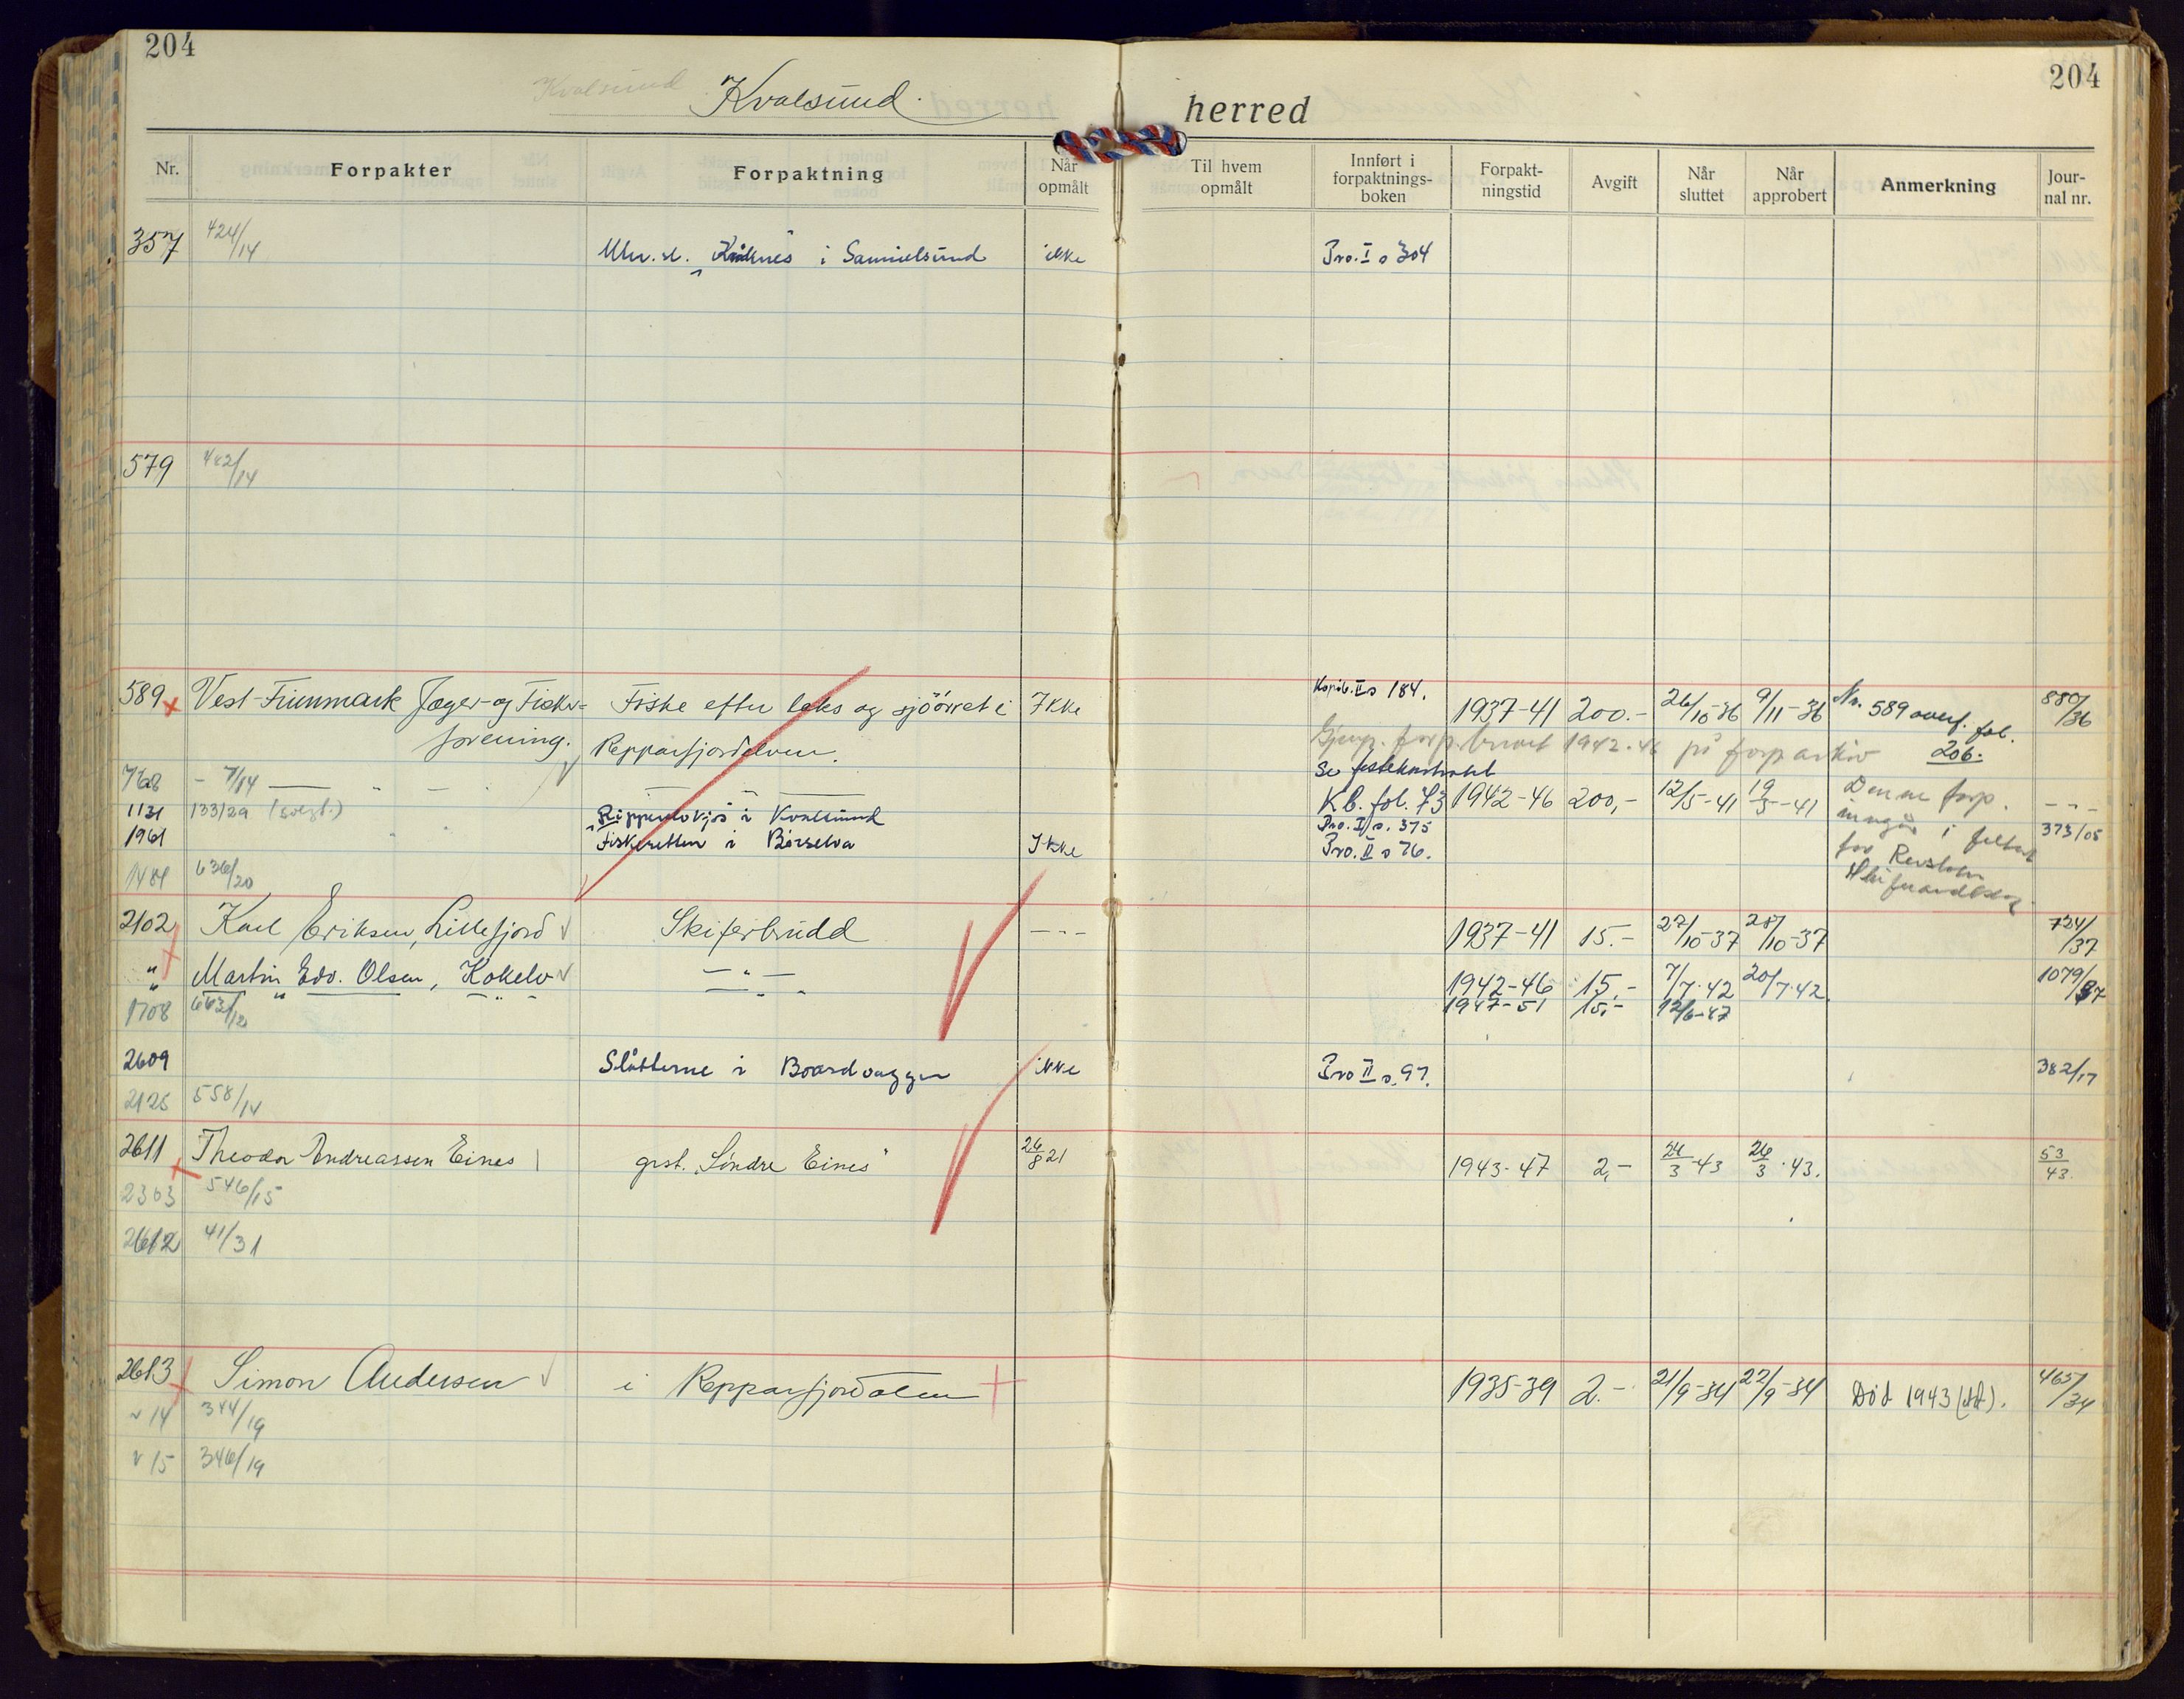 204
204
Kvalsund
Kvalsund.
herred
Nr.
Forpakter
Forpaktning
Når opmålt
Til hvem opmålt
Innført i forpaktnings-boken
Forpakt-ningstid
Avgift
Når sluttet
Når approbert
Anmerkning
Jour-nal nr.
357 424/14 i Samuelsund ikke Pro. I s 304
579 442/14
589 Vest-Finnmark Jæger- og Fisker= Fiske efter laks og sjöörret i Ikke Kopib. II s 184. 1937-41 200.- 26/10-36 9/11-36 Nr. 589 overf. fol. 206. 880/36
forening. Repparfjordelven. 1942-46 på forp arkiv
768 - 7/14 — " — Se
Kb. fol. 73 1942-46 200,- 12/5-41 19/5-41 Denne forp. - " -
1131 133/29 i Kvalsund Pro. I s. 375 inngår i feltet 373/05
1961 Fiskeretten i Börselva Ikke Pro. II s 76. for
1484 636/20
2102 Karl Eriksen, Lillefjord Skiferbrudd - - - 1937-41 15.- 27/10-37 28/10-37 724/37
" Martin Edv. Olsen, Kokelv — " — 1942-46 15,- 7/7-42 20/7-42. 1079/37
1708 663/12 " " - — " " 1947-51 15,- 12/6-47
2609 Slåtterne i Boardvaggen ikke Pro II s. 97. 382/17
2125 558/14
2611 Theodor Andreassen Eines grst. "Söndre Eines" 26/8 21 1943-47 2,- 24/3-43 26/3-43. 53/43.
2303 546/15
2612 41/31
2613 Simon Andersen i Repparfjordalen 1935-39 2.- 21/9-34 22/9-34 Död 1943 465/34
" 14 344/19
" 15 346/19